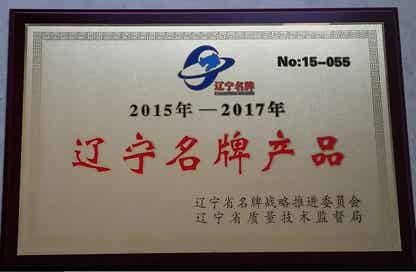 辽宁名牌
No:15-055
2015年—2017年
辽宁名牌产品
辽宁省名牌战略推进委员会
辽宁省质量技术监督局